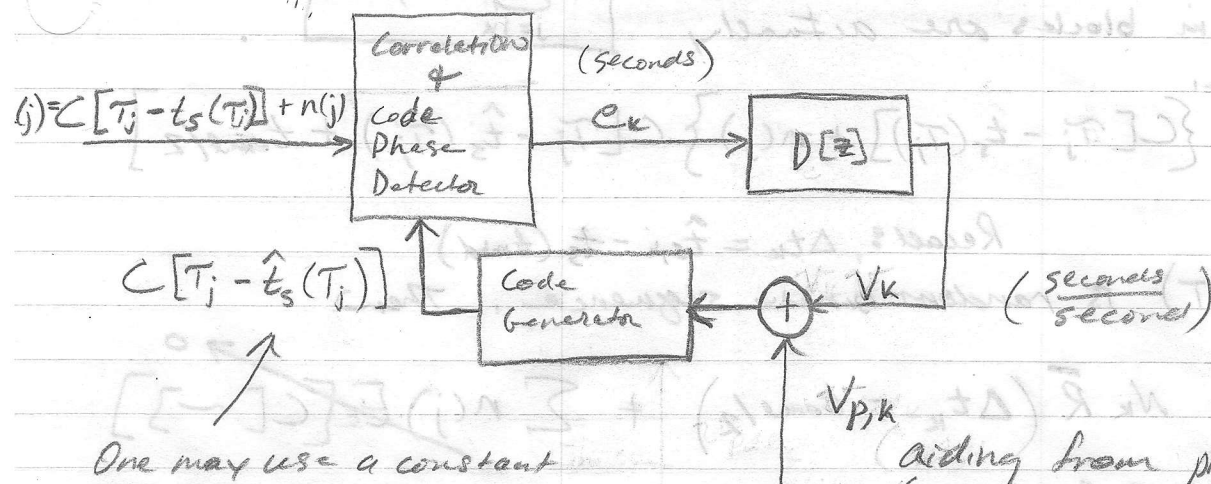 Correlation
&
Code
Phase
Detector
(seconds)
(j)=C[τj - ts(τj)] + n(j)
ek
D[z]
C[τj - t̂s(τj)]
Code
Generator
+
Vk
(seconds/second)
Vp,k
One may use a constant
aiding from